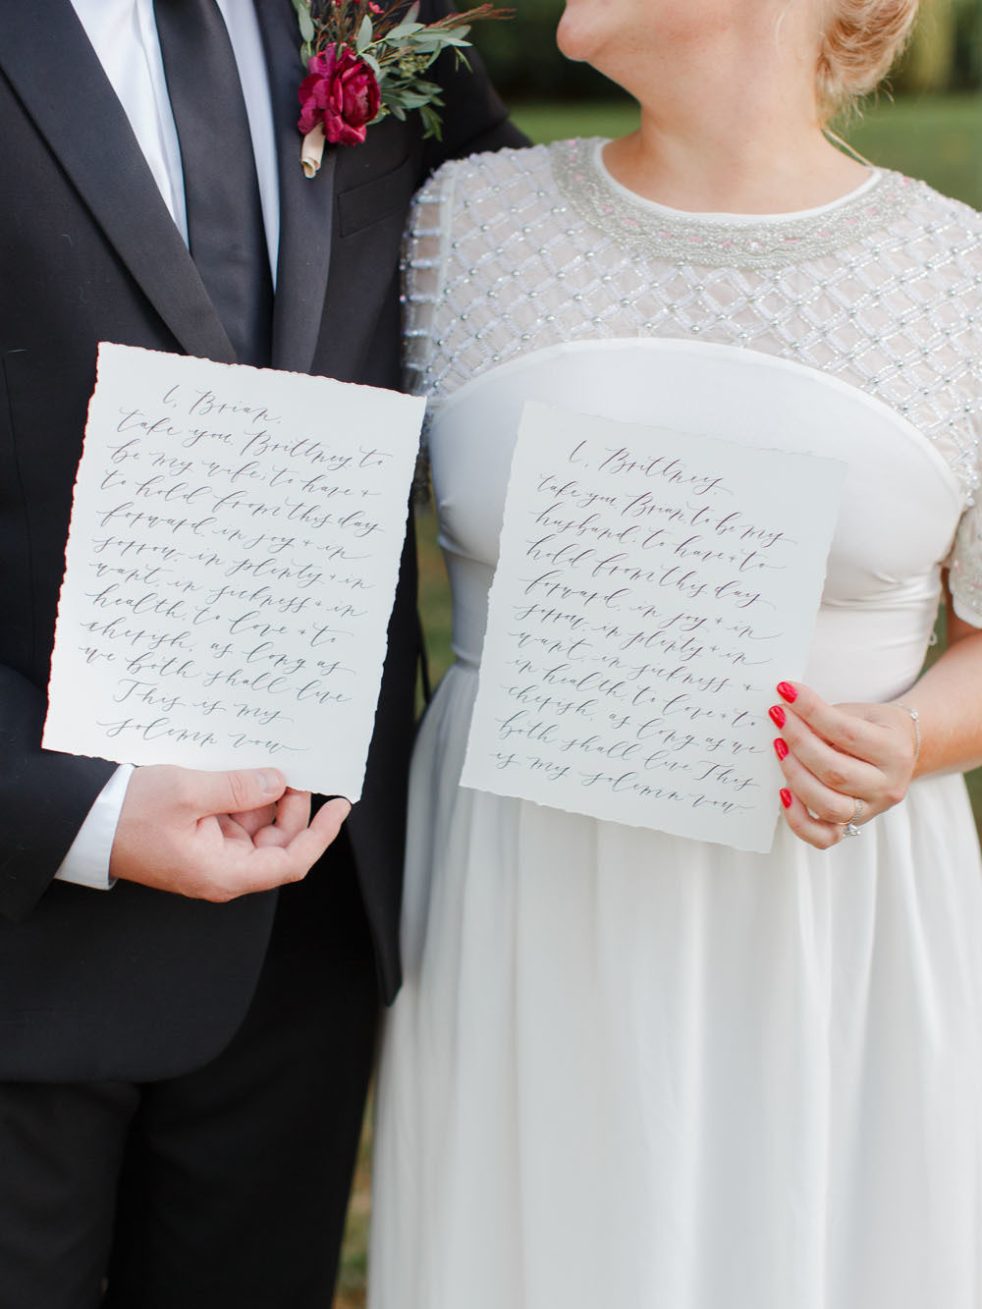 I, Brian,
take you, Brittney to
be my wife; to have +
to hold from this day
forward, in joy + in
sorrow, in plenty + in
want, in sickness + in
health, to love + to
cherish, as long as
we both shall live
This is my
solemn vow
I, Brittney,
take you Brian to be my
husband; to have + to
hold from this day
forward, in joy + in
sorrow, in plenty + in
want, in sickness +
in health, to love + to
cherish, as long as we
both shall live. This
is my solemn vow.